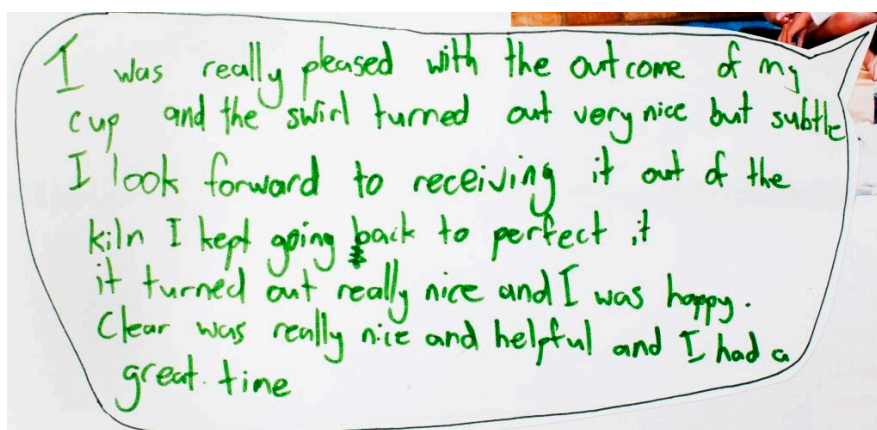 I was really pleased with the outcome of my
cup and the swirl turned out very nice but subtle
I look forward to receiving it out of the
kiln I kept going back to perfect it
it turned out really nice and I was happy.
Clear was really nice and helpful and I had a
great. time